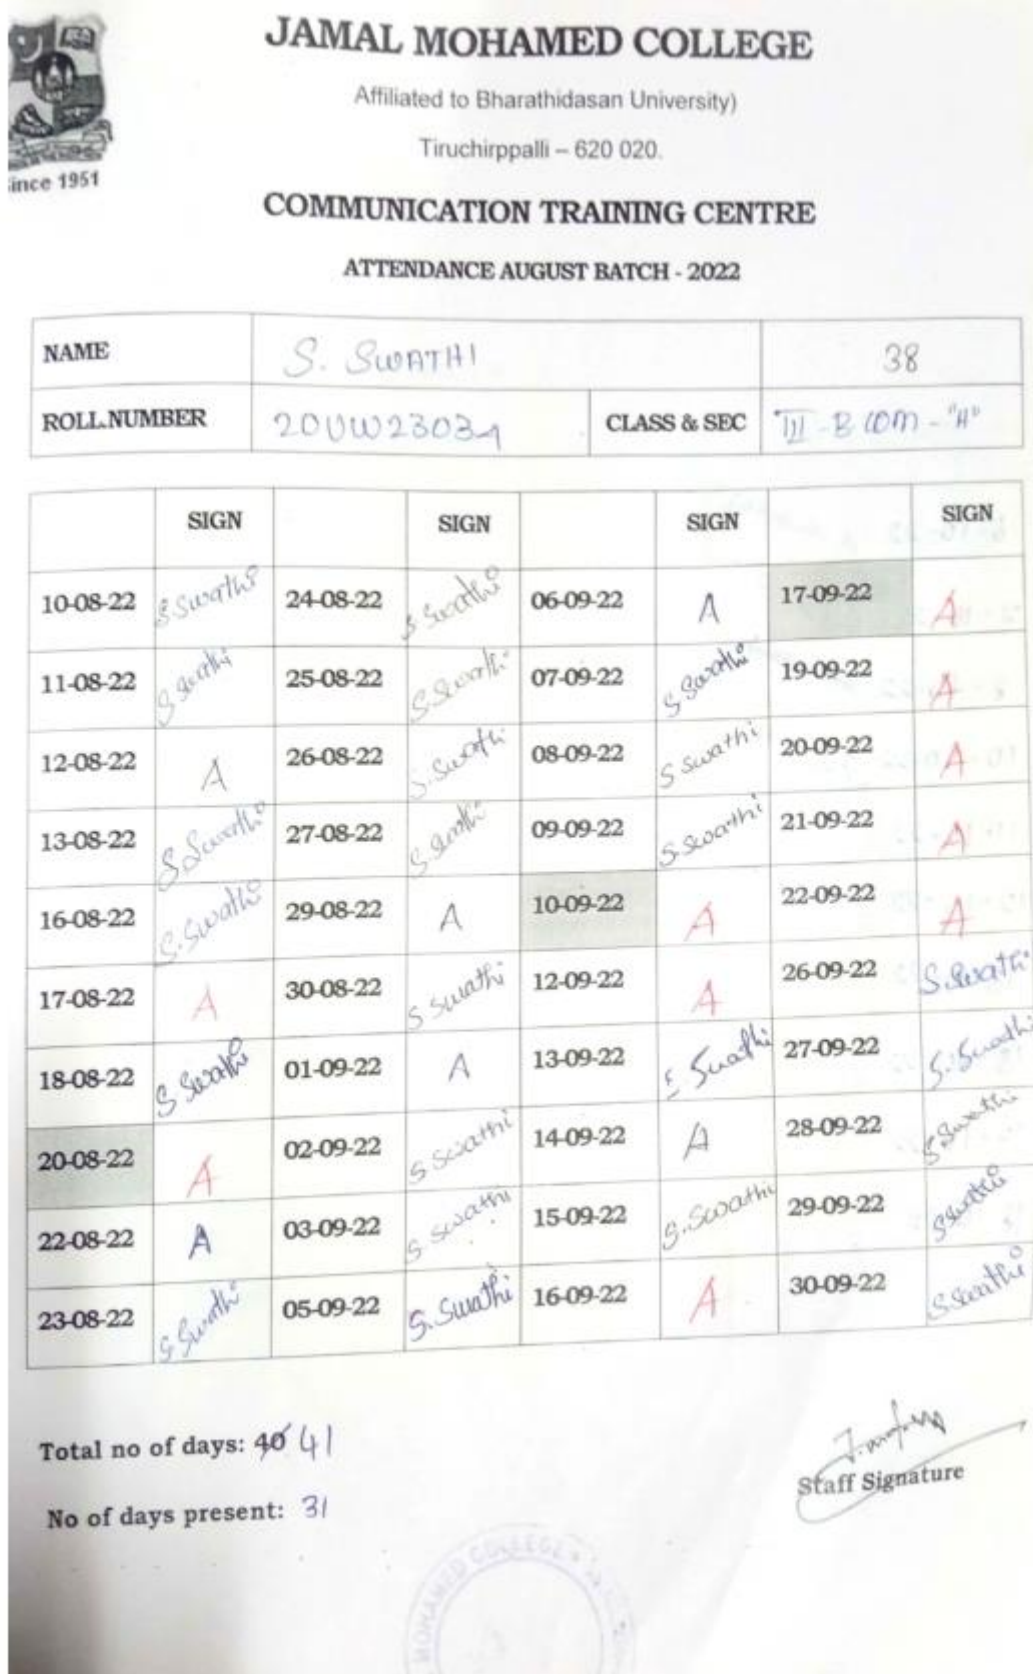 JAMAL MOHAMED COLLEGE
Affiliated to Bharathidasan University)
Tiruchirppalli – 620 020.
ince 1951
COMMUNICATION TRAINING CENTRE
ATTENDANCE AUGUST BATCH - 2022
NAME S. SWATHI 38
ROLL.NUMBER 20UW23034 CLASS & SEC III - B COM - "A"
SIGN SIGN SIGN SIGN
10-08-22 S Swathi 24-08-22 S Swathi 06-09-22 A 17-09-22 A
11-08-22 S Swathi 25-08-22 S Swathi 07-09-22 S Swathi 19-09-22 A
12-08-22 A 26-08-22 S. Swathi 08-09-22 S Swathi 20-09-22 A
13-08-22 S. Swathi 27-08-22 S Swathi 09-09-22 S Swathi 21-09-22 A
16-08-22 S. Swathi 29-08-22 A 10-09-22 A 22-09-22 A
17-08-22 A 30-08-22 S Swathi 12-09-22 A 26-09-22 S. Swathi
18-08-22 S Swathi 01-09-22 A 13-09-22 S Swathi 27-09-22 S. Swathi
20-08-22 A 02-09-22 S Swathi 14-09-22 A 28-09-22 S Swathi
22-08-22 A 03-09-22 S Swathi 15-09-22 S. Swathi 29-09-22 S Swathi
23-08-22 S Swathi 05-09-22 S. Swathi 16-09-22 A 30-09-22 S Swathi
Total no of days: 40 41
Staff Signature
No of days present: 31
MOHAMED COLLEGE